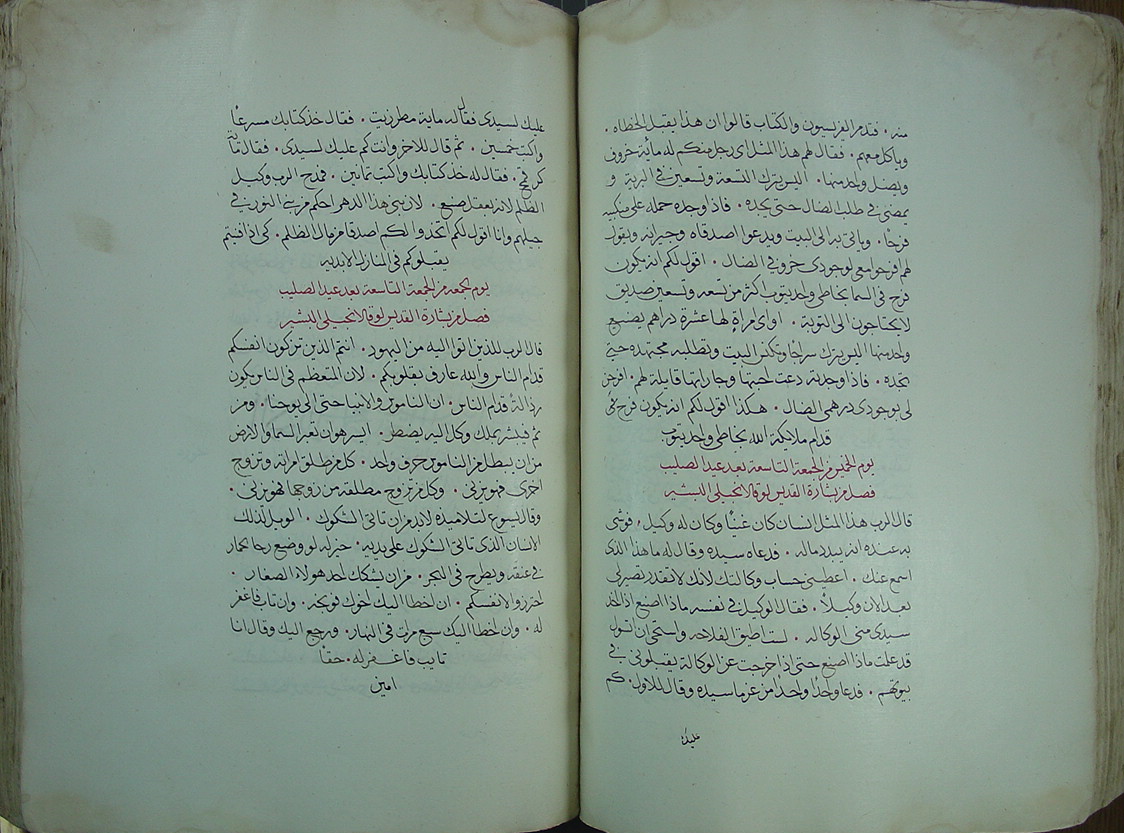 منه . فتدمر الفريسيون والكتاب قالوا ان هذا يقبل الخطاه .
وياكل معهم . فقال لهم هذا المثل اي رجل منكم له ماية خروف
ويضل واحد منها . اليس يترك التسعة وتسعين في البرية و
يمضي في طلب الضال حتى يجده . فاذا وجده حمله على منكبيه
فرحًا . وياتي به الى البيت ويدعوا اصدقاه وجيرانه ويقول
لهم افرحوا معي لوجودي خروفي الضال . اقول لكم انه يكون
فرح في السما بخاطي واحد يتوب اكثر من تسعه وتسعين صديق
لا يحتاجون الى التوبة . او اي امراة لها عشرة دراهم يضيع
واحد منها اليس تترك سراجا وتكنس البيت وتطلبه مجتهده حتى
تجده . فاذا وجدته دعت احبتها وجاراتها قايلة لهم . افرحن
لي بوجودي درهمي الضال . هكذا اقول لكم انه يكون فرح
قدام ملايكة الله بخاطي واحد يتوب
يوم الخميس من الجمعة التاسعة بعد عيد الصليب
فصل من بشارة القديس لوقا الانجيلي البشير
قال الرب هذا المثل انسان كان غنيًا وكان له وكيل . فوشى
به عنده انه يبدد ماله . فدعاه سيده وقال له ما هذا الذي
اسمع عنك . اعطيني حساب وكالتك لانك لا تقدر تصير لي
بعد الان وكيلاً . فقال الوكيل في نفسه ماذا اصنع اذا اخذ
سيدي مني الوكاله . لست اطيق الفلاحه واستحي ان اتسول
قد علمت ماذا اصنع حتى اذا خرجت عن الوكالة يقبلوني في
بيوتهم . فدعا واحدًا واحدًا من غرما سيده وقال للاول . كم
عليك
عليك لسيدي فقال له ماية مطر زيت . فقال خذ كتابك مسرعًا
واكتب خمسين . ثم قال للاخر وانت كم عليك لسيدي . فقال ماية
كر قمح . فقال له خذ كتابك واكتب ثمانين . فمدح الرب وكيل
الظلم لانه بعقل صنع . لان بني هذا الدهر احكم من بني النور في
جيلهم وانا اقول لكم اتخذوا لكم اصدقا من مال الظلم . كي اذا فنيتم
يقبلوكم في المنازل الابديه
يوم الجمعه من الجمعة التاسعة بعد عيد الصليب
فصل من بشارة القديس لوقا الانجيلي البشير
قال الرب للذين اتوا اليه من اليهود . انتم الذين تزكون انفسكم
قدام الناس والله عارف بقلوبكم . لان المتعظم في الناس يكون
رذالة قدام الناس . ان الناموس والانبيا حتى الى يوحنا . ومن
ثم فيبشر بملك وكل اليه يضطر . ايسر هو ان تعبر السما والارض
من ان يبطل من الناموس حرف واحد . كل من طلق امراته وتزوج
اخرى فهو يزني . وكل من تزوج مطلقه من زوجها فهو يزني .
وقال يسوع لتلاميذه لابد من ان تاتي الشكوك . الويل لذلك
الانسان الذي تاتي الشكوك على يديه . خير له لو وضع رحا الحمار
في عنقه ويطرح في البحر . من ان يشكك احد هولاء الصغار .
احترزوا لانفسكم . ان اخطا اليك اخوك فوبخه . وان تاب فاغفر
له . وان اخطا اليك سبع مرات في النهار . ورجع اليك وقال انا
تايب فاغفر له . حقًا
امين